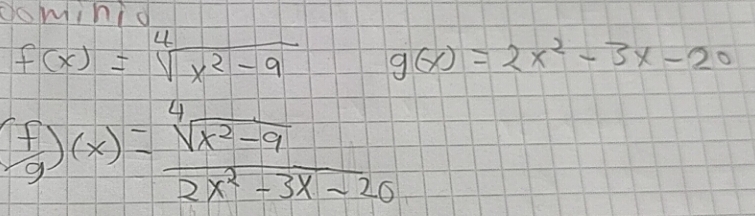 Dominio
f(x) = ∜(x² - 9) g(x) = 2x² - 3x - 20
(f/g)(x) = ∜(x² - 9) / (2x² - 3x - 20)